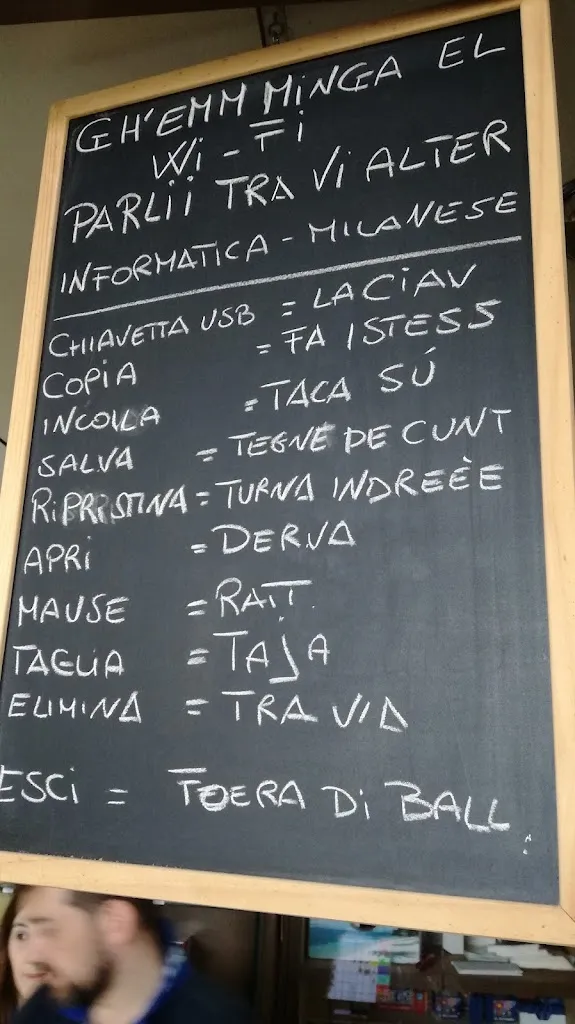 GH'EMM MINGA EL
Wi-Fi
PARLII TRA VI ALTER
INFORMATICA - MILANESE
CHIAVETTA USB = LA CIAV
COPIA = FA ISTESS
INCOLLA = TACA SÚ
SALVA = TEGNE DE CUNT
RIPRISTINA = TURNA INDREEÈ
APRI = DERVA
MAUSE = RATT.
TAGLIA = TAJA
ELIMINA = TRA VIA
ESCI = TOERA DI BALL.